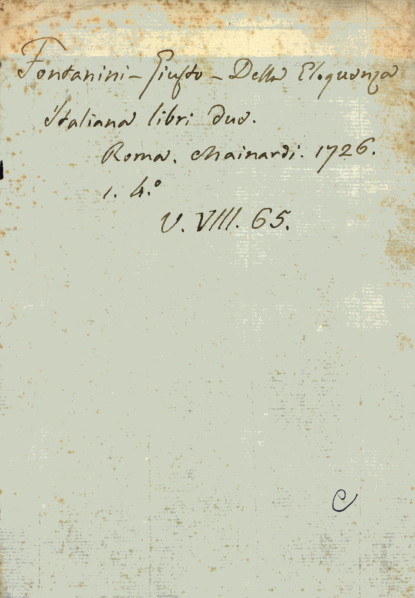 Fontanini - Giusto - Della Eloquenza
Italiana libri due.
Roma. Mainardi. 1726.
1. 4.º
V. VIII. 65.
C